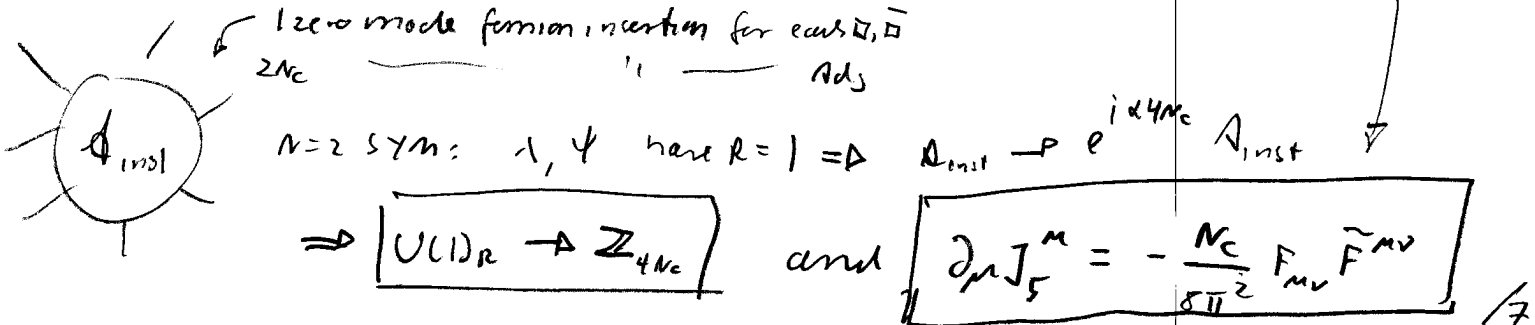 1 zero mode fermion insertion for each □, □̄
2Nc —— " —— Adj
A_inst
N=2 SYM: λ, ψ have R = 1 ⇒ A_inst → e^{iα4Nc} A_inst
⇒ U(1)_R → ℤ_{4Nc} and ∂_μ J_5^μ = - \frac{N_c}{8π^2} F_{μν} \tilde{F}^{μν}
/7